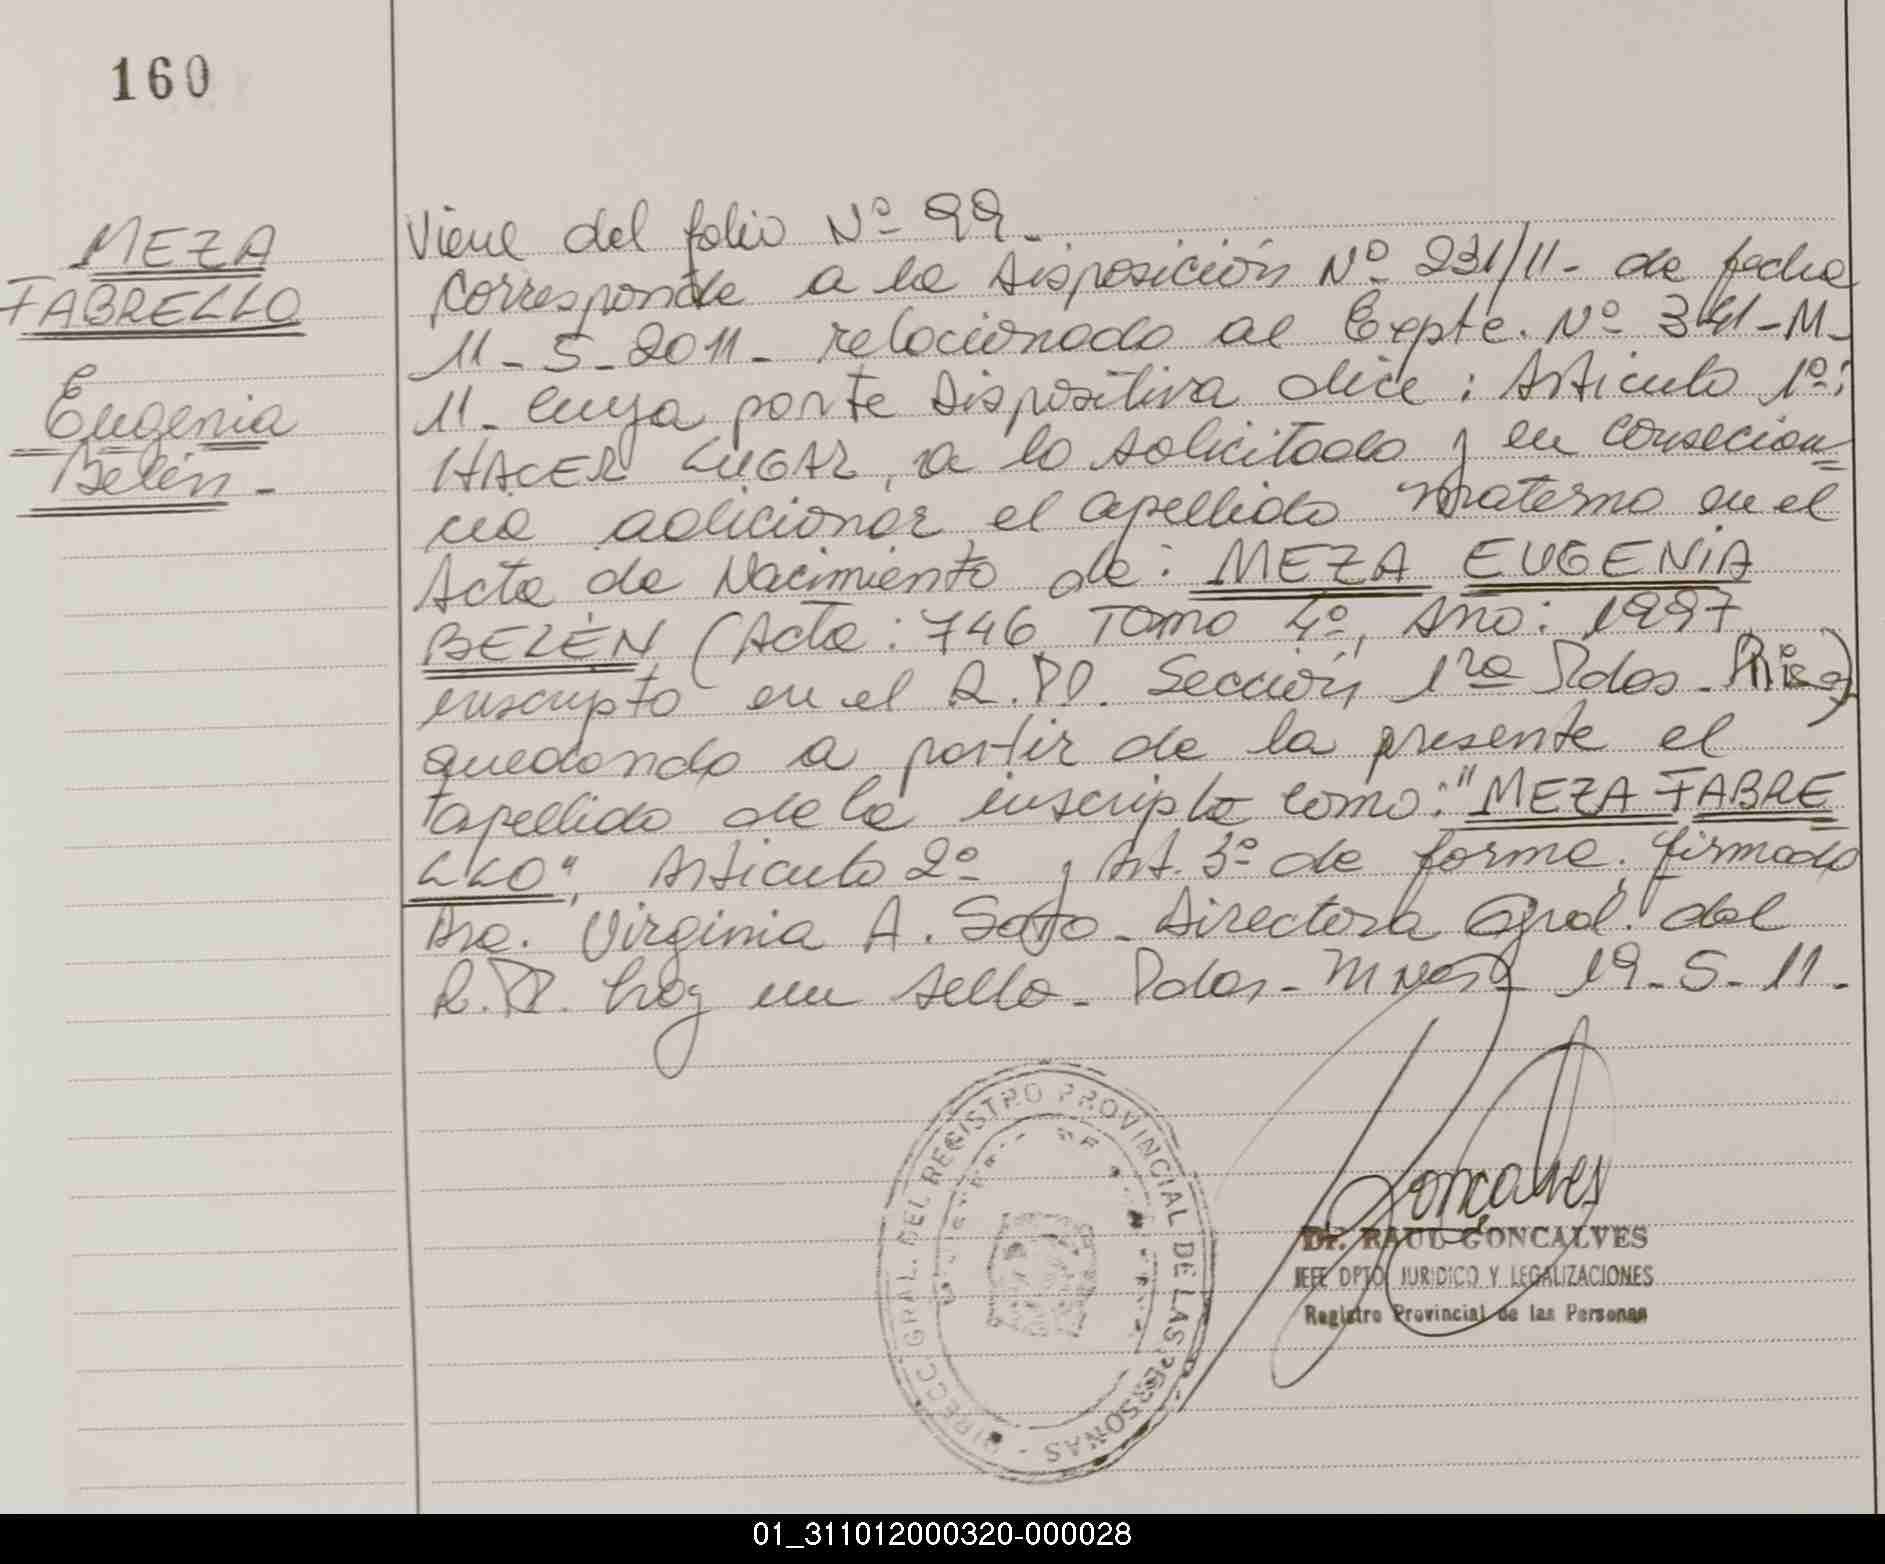 160
MEZA
FABRELLO
Eugenia
Belén -
Viene del folio Nº 99 -
Corresponde a la Disposición Nº 231/11 - de fecha
11 - 5 - 2011 - relacionado al Expte. Nº 341 - M -
11 - cuya parte dispositiva dice : Articulo 1º :
HACER LUGAR, a lo solicitado y en consecuen=
cia adicionar el apellido materno en el
Acta de Nacimiento de : MEZA EUGENIA
BELÉN (Acta : 746 Tomo 4º, Año : 1997
inscripto en el R.P.P. Sección 1ra Pdas -
quedando a partir de la presente el
apellido de la inscripta como : "MEZA FABRE
LLO", Articulo 2º y Art. 3º de forma. firmado
Dra. Virginia A. Soto - Directora Gral. del
R.P.P. hay un sello - Pdas - Mnes - 19 - 5 - 11 -
DIRECC. GRAL. DEL REGISTRO PROVINCIAL DE LAS PERSONAS -
Goncalves
Dr. RAUL GONCALVES
JEFE DPTO JURIDICO Y LEGALIZACIONES
Registro Provincial de las Personas
01_311012000320-000028